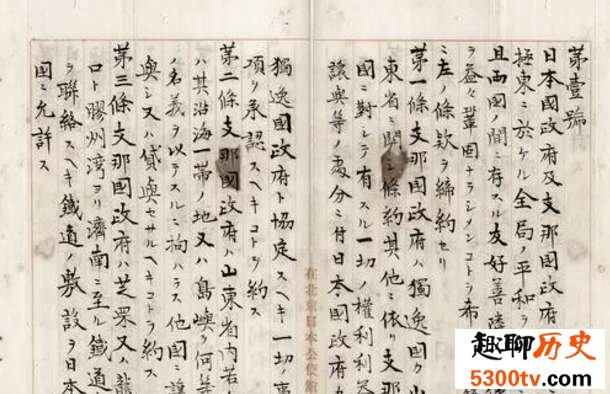 第壹號
日本國政府及支那國政府
極東ニ於ケル全局ノ平和ヲ
且兩國ノ間ニ存スル友好善隣
ヲ益々鞏固ナラシメンコトヲ希
ニ左ノ條款ヲ締約セリ
第一條支那國政府ハ獨逸國カ山
東省ニ關シ條約其他ニ依リ支那
國ニ對シテ有スル一切ノ權利利益
讓與等ノ處分ニ付日本國政府カ
在北京日本公使館
獨逸國政府ト協定スヘキ一切ノ事
項ヲ承認スヘキコトヲ約ス
第二條支那國政府ハ山東省内若
ハ其沿海一帶ノ地又ハ島嶼ヲ何等
ノ名義ヲ以テスルニ拘ハラス他國ニ讓
與シ又ハ貸與セサルヘキコトヲ約ス
第三條支那國政府ハ芝罘又ハ龍
口ト膠州湾ヨリ濟南ニ至ル鐵道
ヲ聯絡スヘキ鐵道ノ敷設ヲ日本
國ニ允許ス
趣聊历史
5300tv.com